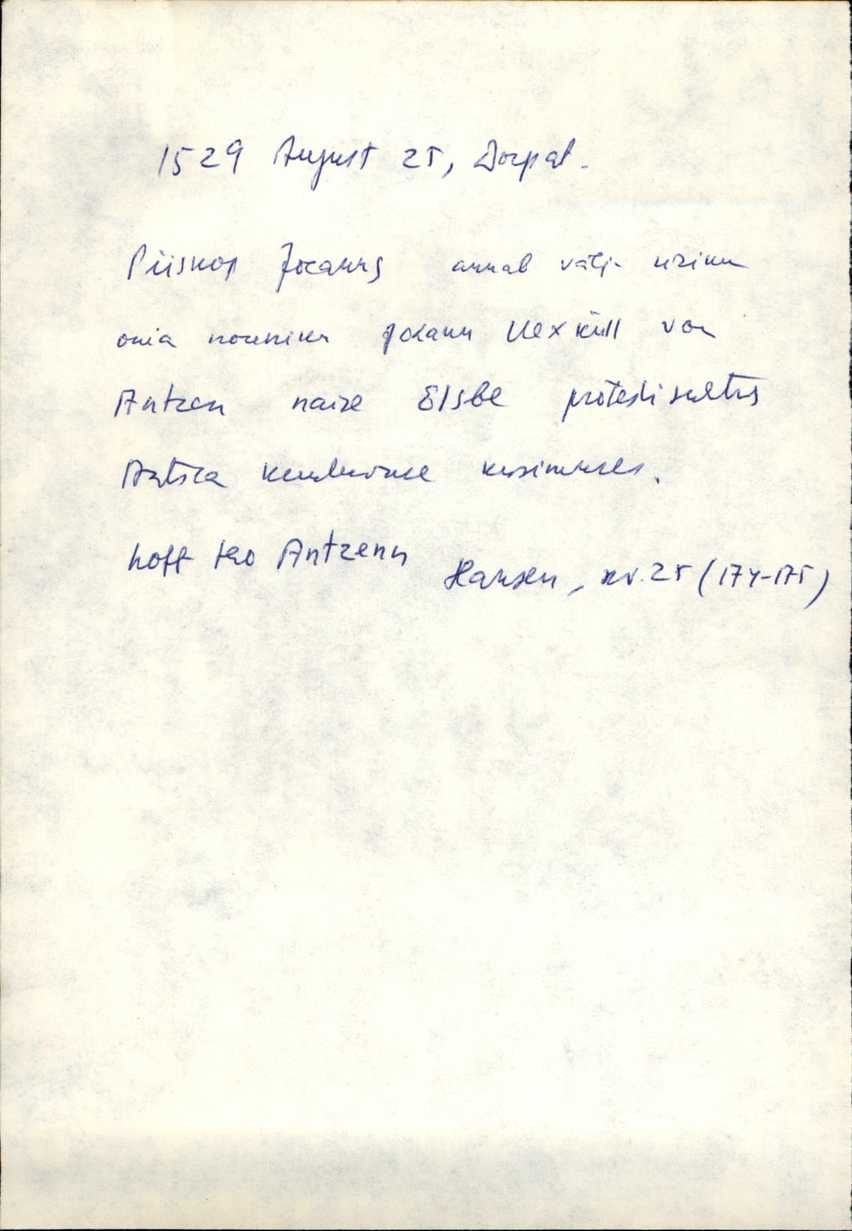 1529 August 25, Dorpat.
Piiskop Johannes annab välja ürik
oma nõuniku Johann Uexküll von
Antzen naise Elsbe protesti suhtes
Antsla küsimuses.
hoff tho Antzenn
Hansen, nr. 25 (174-175)